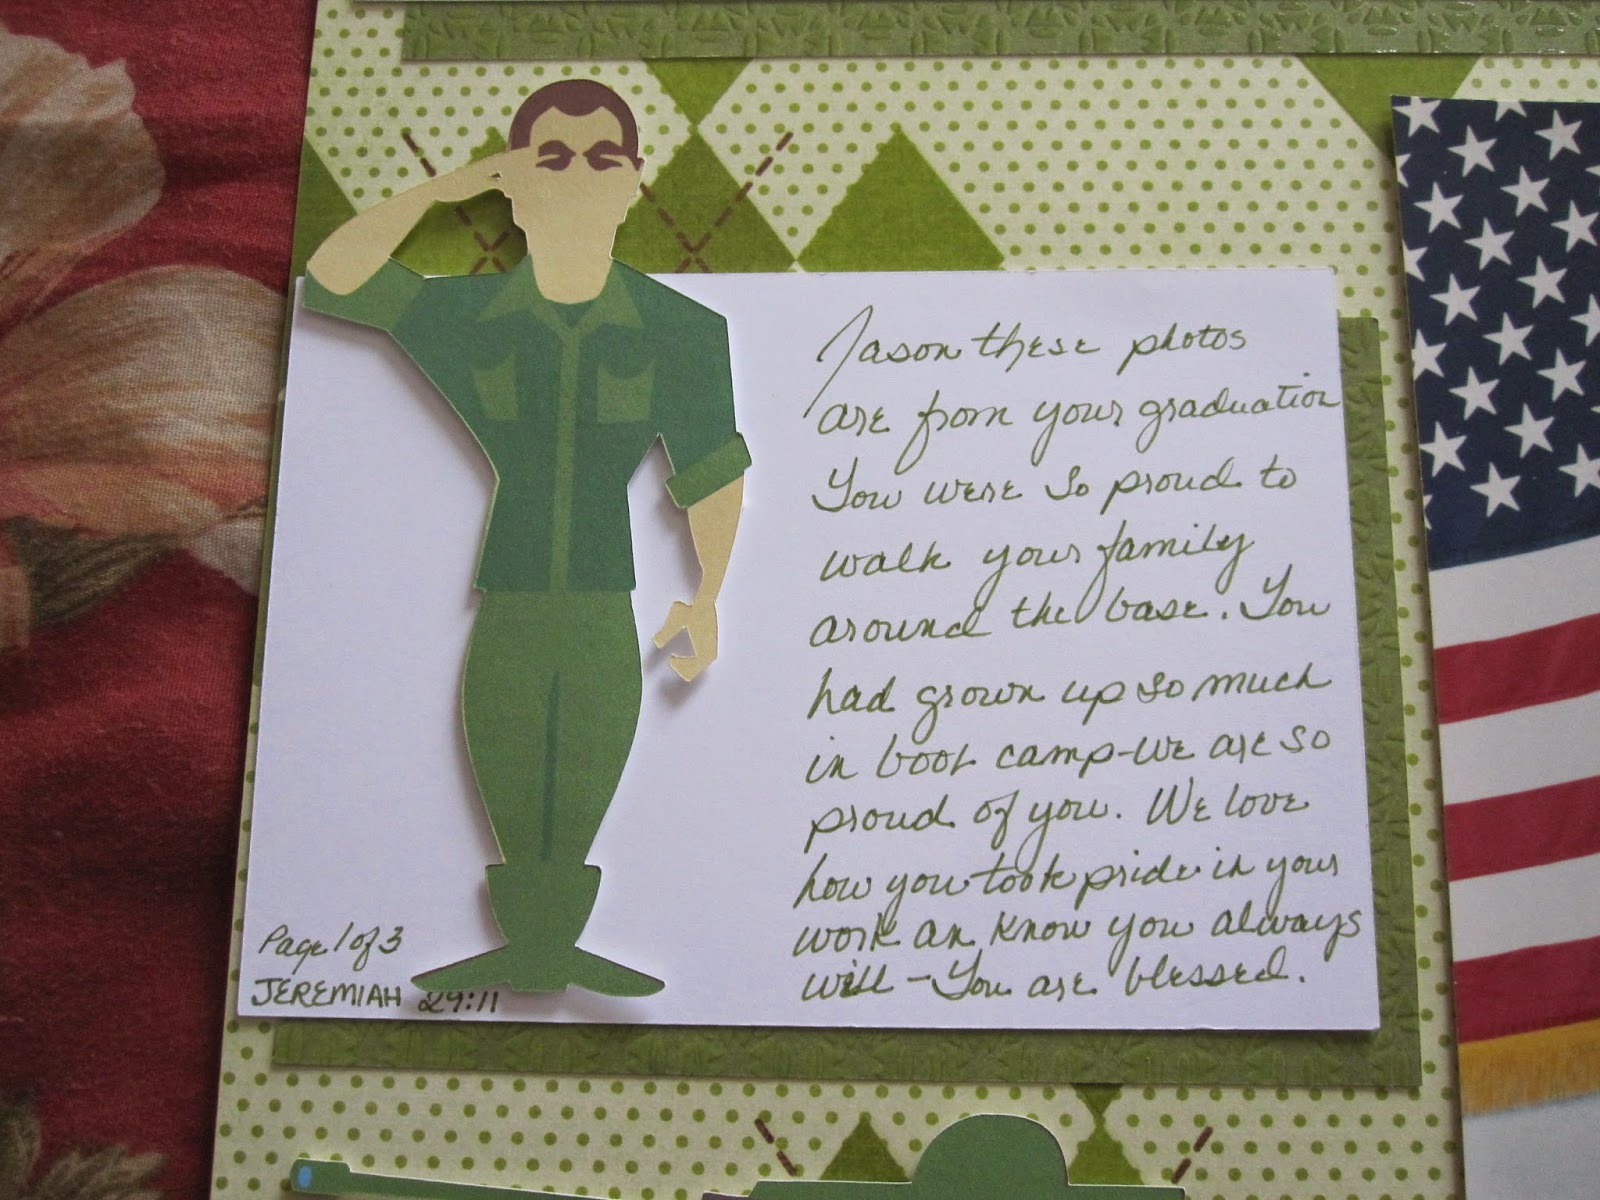 Jason these photos
are from your graduation
You were so proud to
walk your family
around the base. You
had grown up so much
in boot camp-we are so
proud of you. We love
how you took pride in your
work an know you always
will - You are blessed.
Page 1 of 3
JEREMIAH 29:11